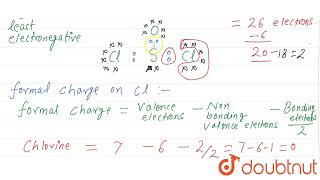 least
electronegative
O
Cl : S : Cl
= 26 electrons
-6
20 -18=2
formal charge on Cl :-
formal charge = Valence electrons - Non bonding valence electrons - Bonding electrons/2
Chlorine = 7 - 6 - 2/2 = 7-6-1=0
doubtnut